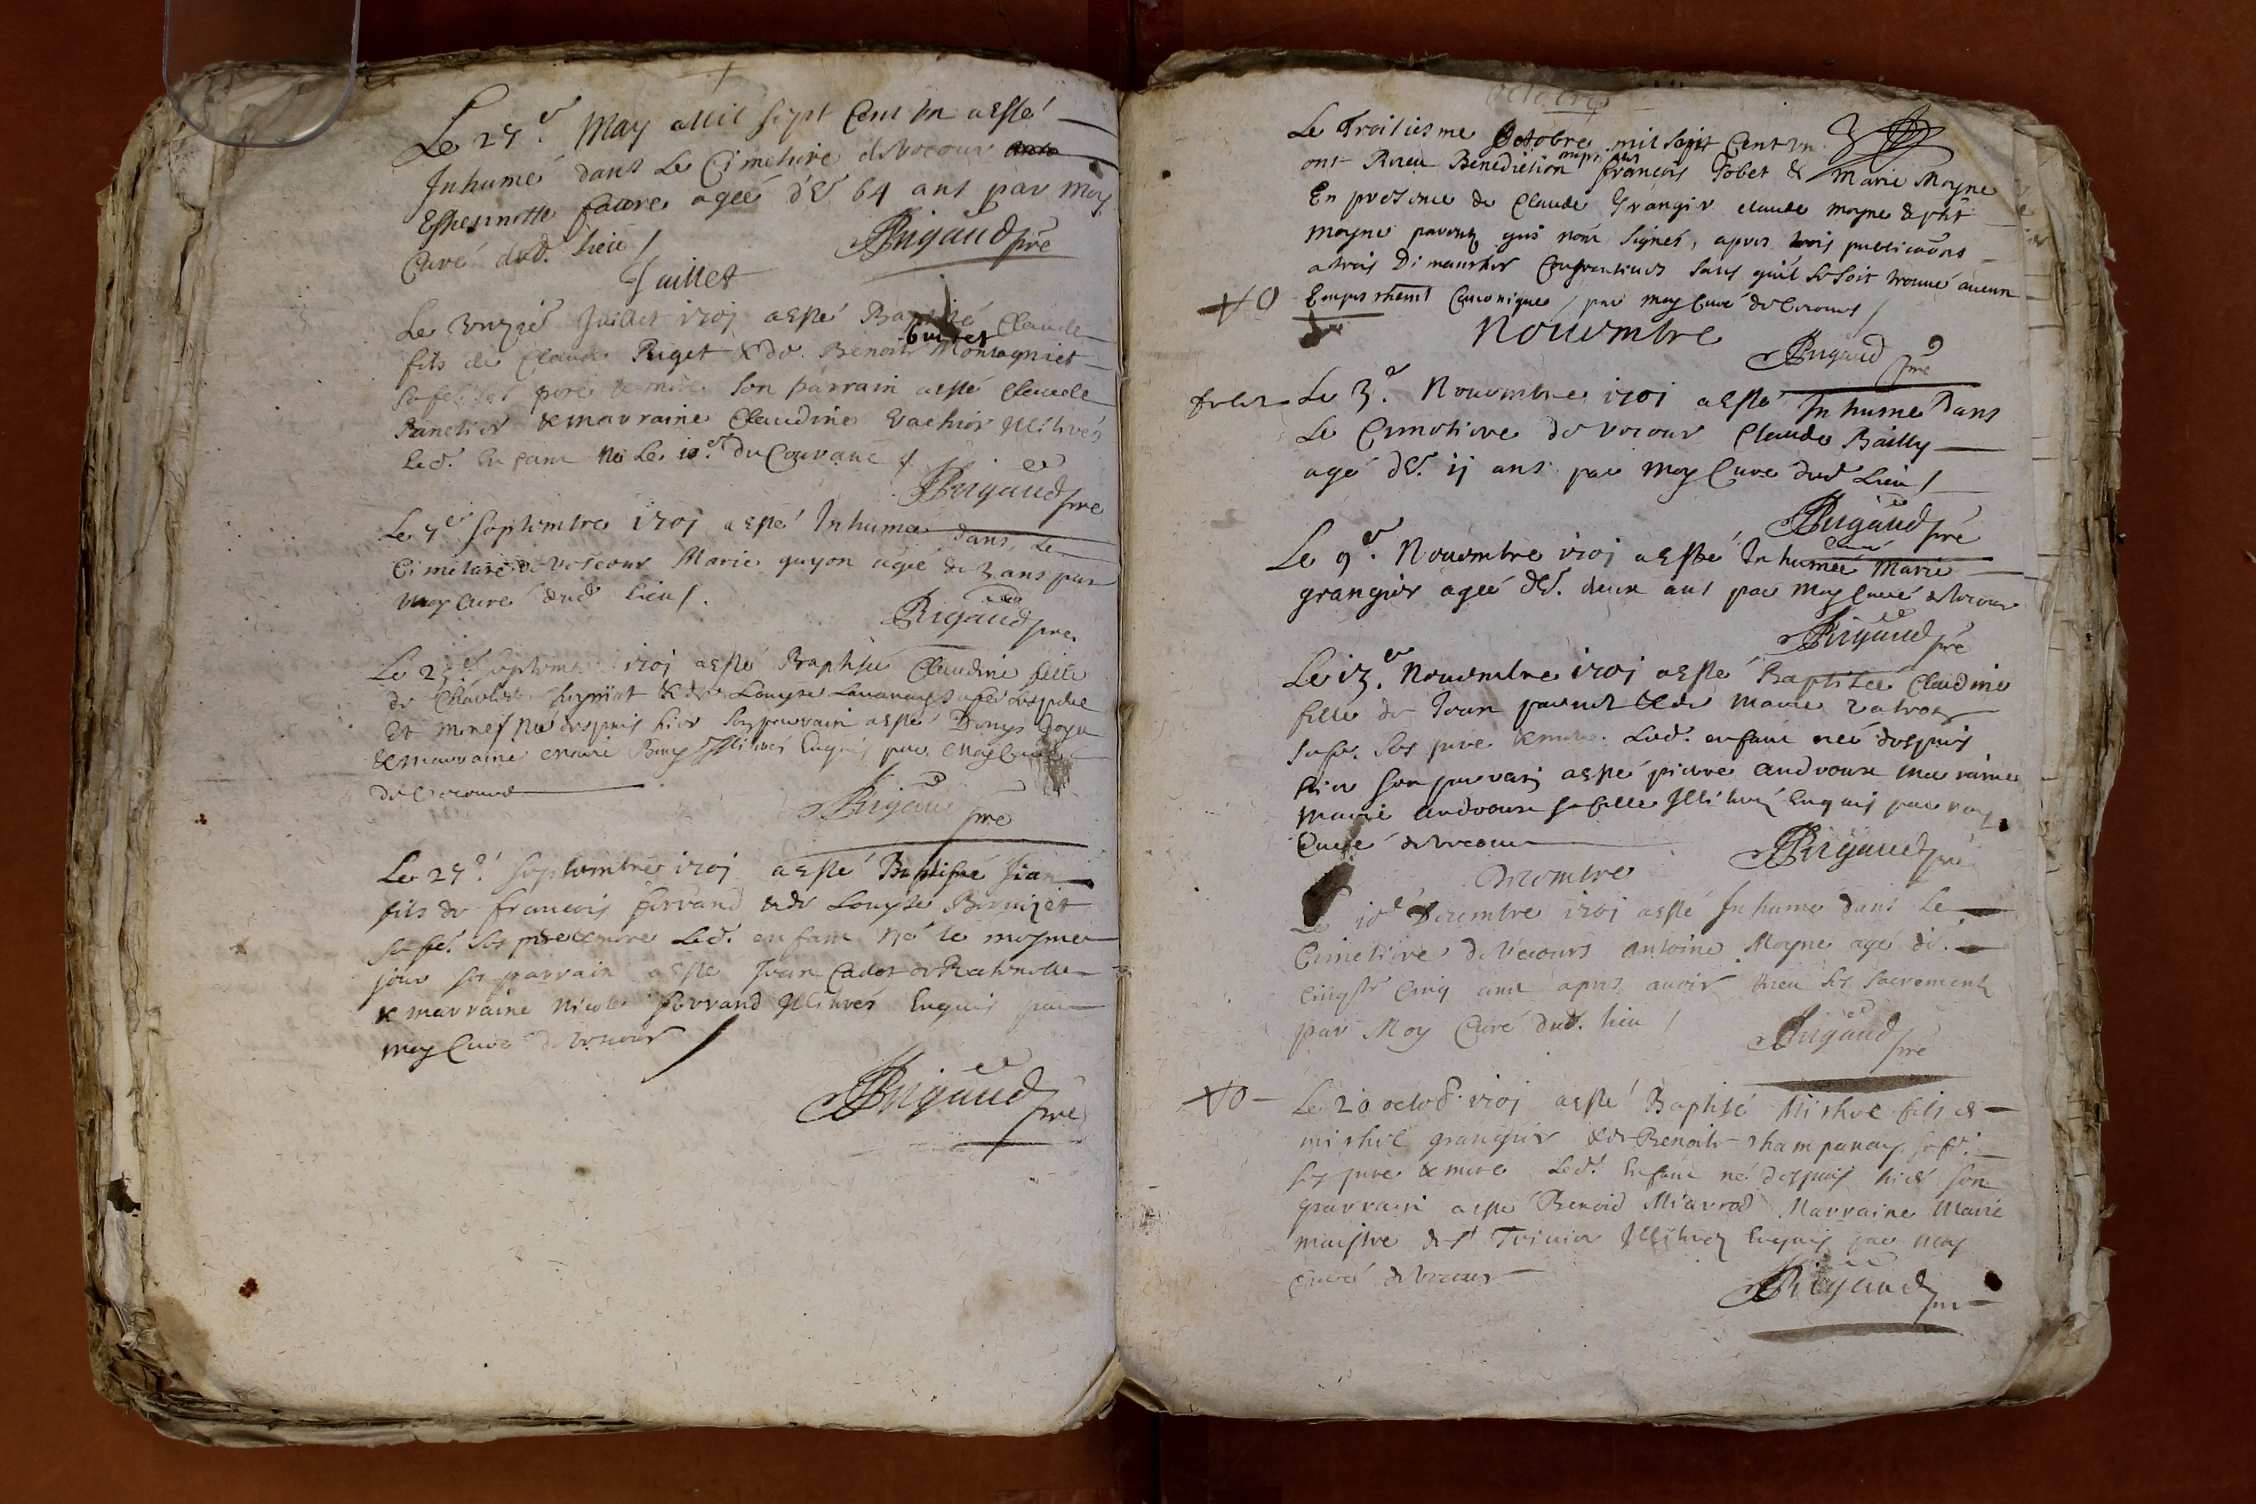 Le 27e. May Mil sept Cent un a Esté
Inhumé dans Le Cimetiere de Vocour
Estiennette faure ageé d'E. 64 ans par moy
Curé dud. lieu /
Rigaud pre
Juillet
Le Juillet 1701 a Esté Baptisé Claude
fils de Claude Riget & de Benoite Montagniet
Budet
sa fe. ses pere & mere. son parrain a esté Claude
& marraine Claudine Vachier Illitrés
Led. Enfant né Le 10e. du Courant /.
Rigaud pre
Le 7e Septembre 1701 a Esté Inhumeé dans Le
Cimetiere de Vescour Marie guyon ageé de 3 ans par
moy Curé dud. lieu /.
Rigaud pre
Le Septembre 1701 a Esté Baptiseé Claudine fille
de Charles & de Louyse sa fe. ses pere
Et mere / neé despuis hier son parrain a esté Denys
& marraine marie Illitrés Enquis par Moy Curé
de Vocour
Rigaud pre
Le 27e. Septembre 1701 a Esté Baptisé Jean
fils de francois ferrand & de Louyse
sa fe. ses pere & mere Led. enfant né le mesme
jour son parrain a Esté Jean Cadot de Ratenelle
& marraine Nicole ferrand Illitrés Enquis par
moy Curé de Vocour /
Rigaud pre
Octobre
Le Troisiesme Octobre mil sept Cent un
ont Receu Benediction nupt. francois Gobet & Marie Moyne
En presence de Claude Grangier claude moyne &
moyne parents qui n'ont signés, apres trois publications
a trois Dimanches Consecutives sans qu'il se soit trouvé aucun
Empeschemt Canonique / par moy Curé de Vocour /
Novembre
Rigaud pre
Le 3e. Novembre 1701 a Esté Inhumé Dans
Le Cimetiere de Vocour Claude Bailly
agé d'E. 11 ans par moy Curé dud. Lieu /
Rigaud pre
Le 9e. Novembre 1701 a Esté Inhumeé Marie
grangier ageé d'E. deux ans par Moy Curé de Vocour
Rigaud pre
Le 13e. Novembre 1701 a Esté Baptiseé Claudine
fille de Jean & de Marie
sa fe. ses pere & mere. Led. enfant neé despuis
hier son parrain a Esté pierre Androux marraine
Marie Androux sa fille Illitrés Enquis par moy
Curé de Vocour
Rigaud pre
Decembre
Le 10e Decembre 1701 a esté Inhumé dans Le
Cimetiere de Vecours Antoine Moyne agé d'E.
Cinq ans apres avoir Receu les sacrements
par Moy Curé dud. lieu /
Rigaud pre
Le 20 octob. 1701 a Esté Baptisé Mishel fils de
mishel grangier & de Benoite shampanay sa fe.
ses pere & mere Led. Enfant né despuis hier son
parrain a esté Benoid Miarrod Marraine Marie
maistre de St Trivier Illitrés Enquis par moy
Curé de Vocour
Rigaud pre